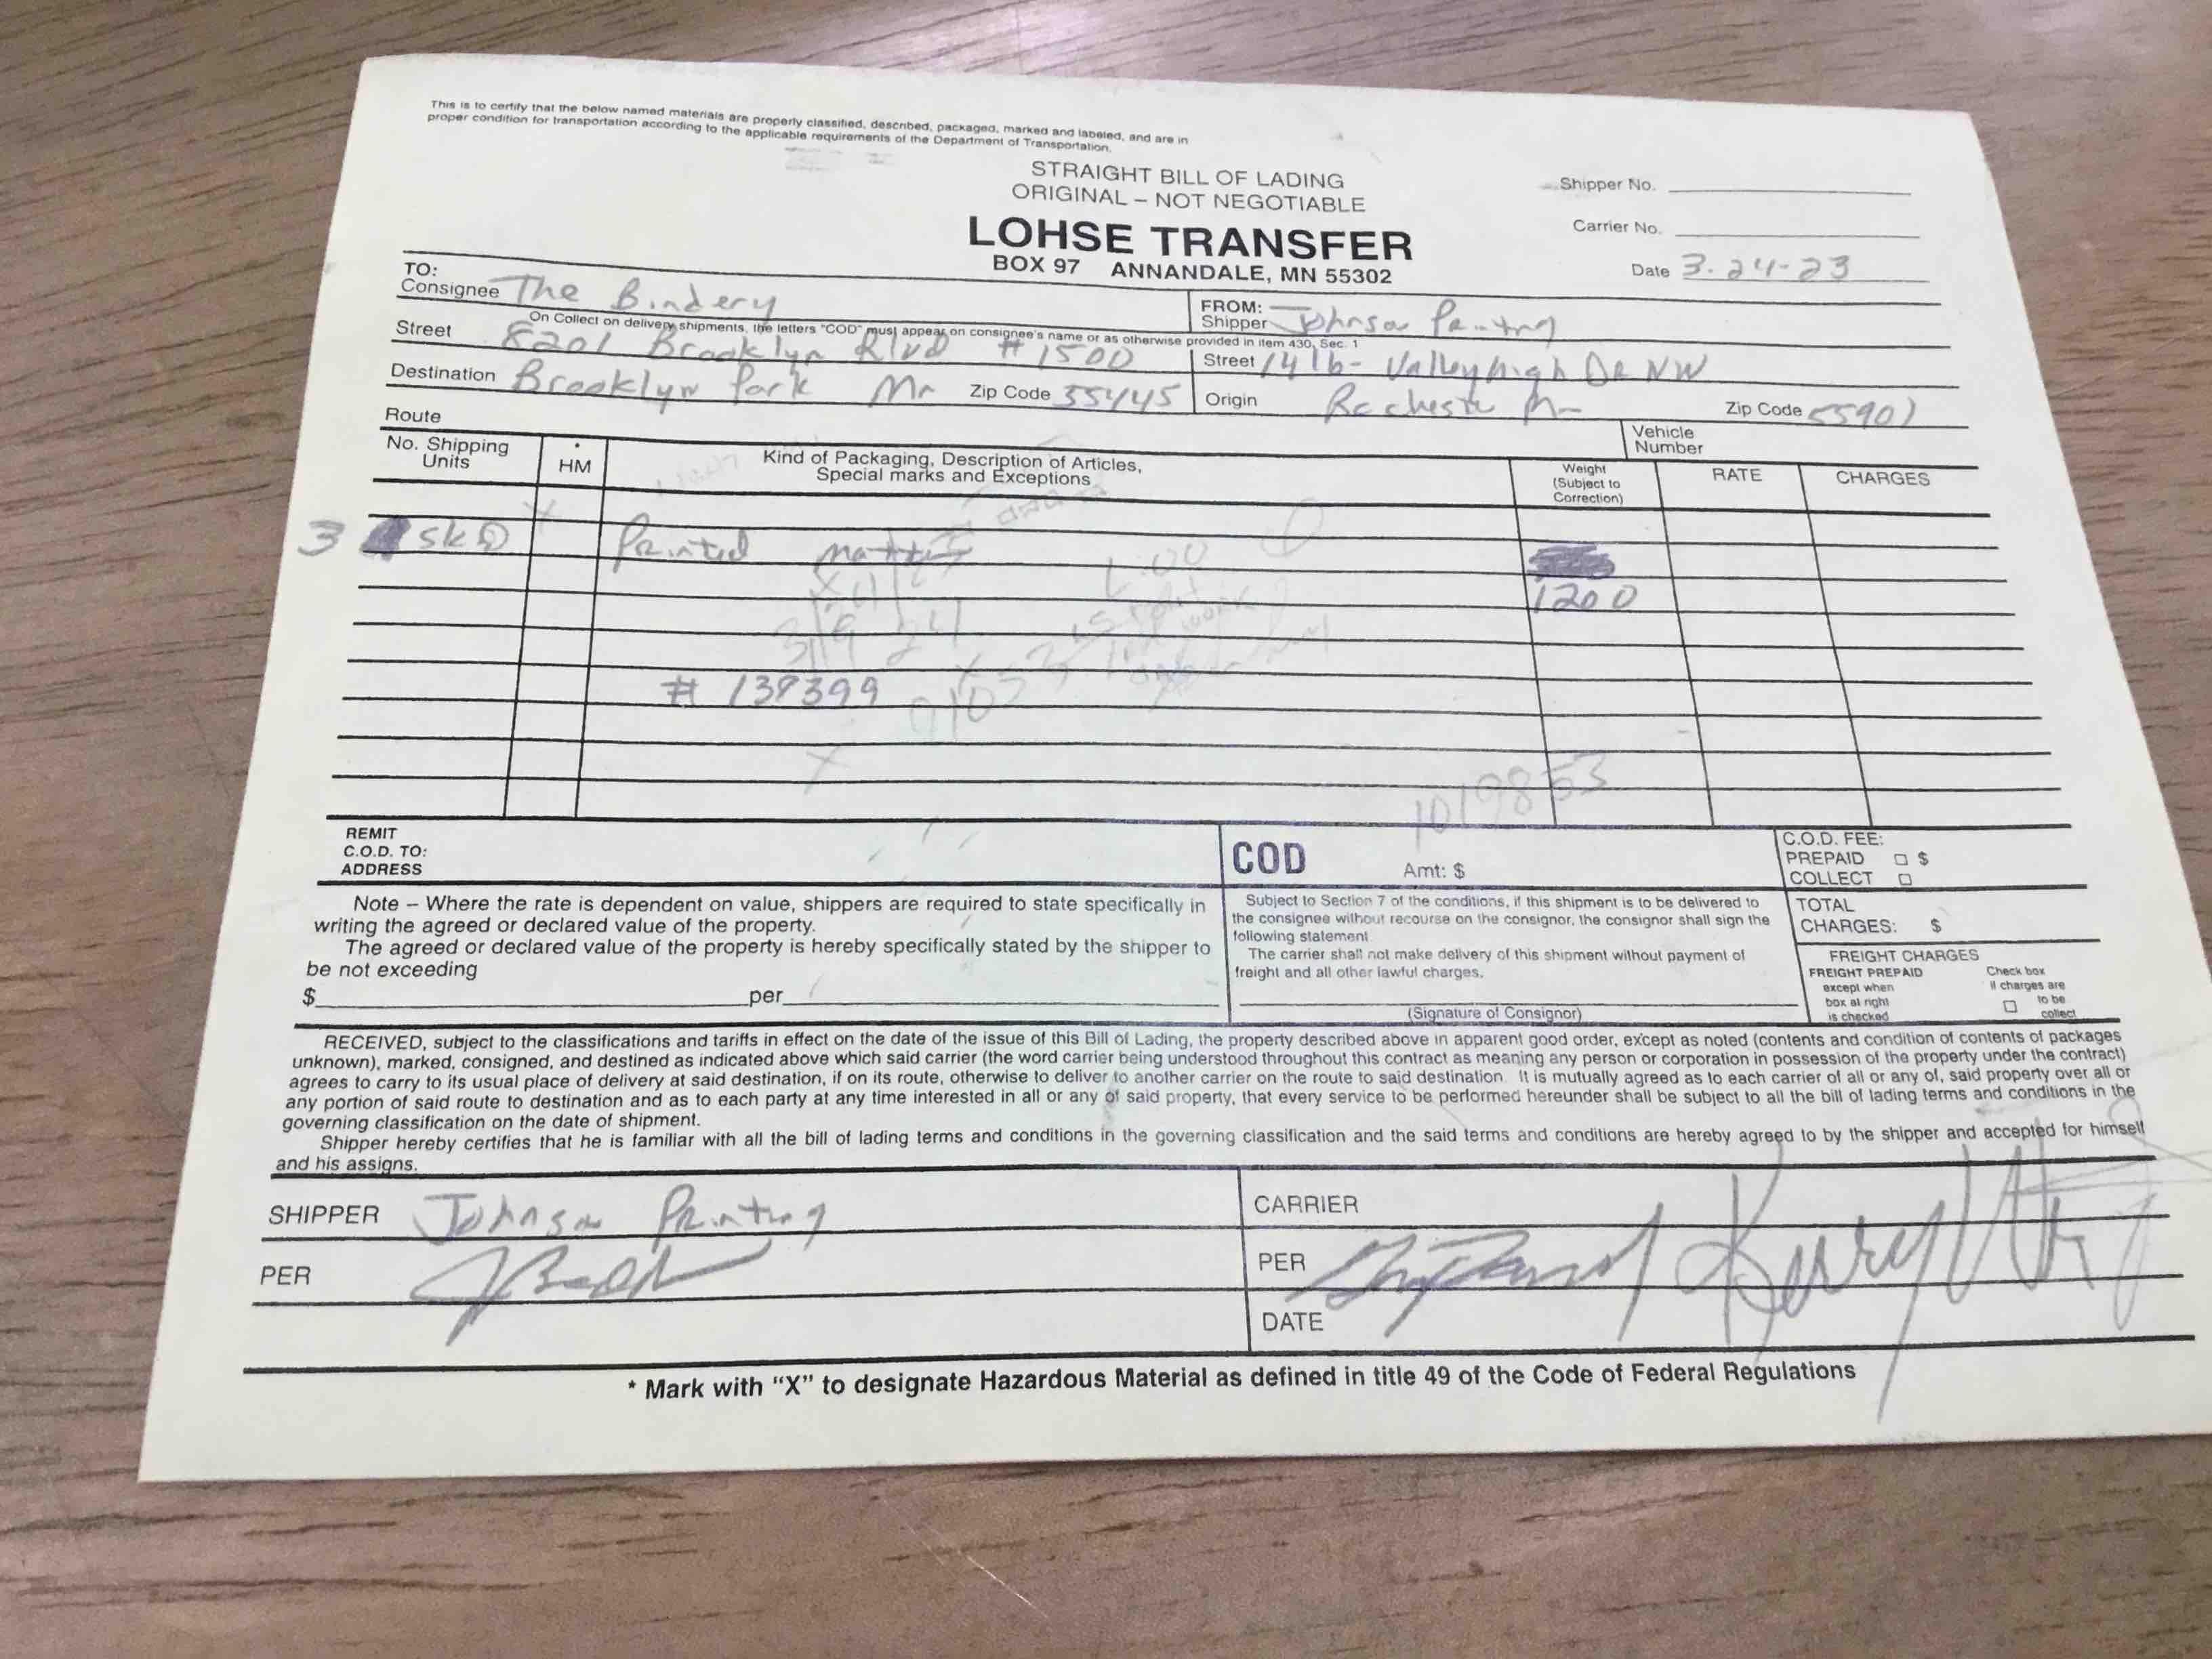 This is to certify that the below named materials are properly classified, described, packaged, marked and labeled, and are in
proper condition for transportation according to the applicable requirements of the Department of Transportation.
STRAIGHT BILL OF LADING
ORIGINAL – NOT NEGOTIABLE
LOHSE TRANSFER
BOX 97 ANNANDALE, MN 55302
Shipper No.
Carrier No.
Date 3-24-23
TO:
Consignee The Bindery
FROM:
Shipper Johnson Printing
On Collect on delivery shipments, the letters "COD" must appear on consignee's name or as otherwise provided in item 430, Sec. 1
Street 8201 Brooklyn Blvd #1500
Street 1416- Valleyhigh DR NW
Destination Brooklyn Park Mn Zip Code 55445
Origin Rochester Mn Zip Code 55901
Route
Vehicle
Number
No. Shipping
Units
* HM
Kind of Packaging, Description of Articles,
Special marks and Exceptions
Weight
(Subject to
Correction)
RATE
CHARGES
3 SKD Printed matter
1200
# 138399
1019853
REMIT
C.O.D. TO:
ADDRESS
COD Amt: $
C.O.D. FEE:
PREPAID ☐ $
COLLECT ☐
Note – Where the rate is dependent on value, shippers are required to state specifically in
writing the agreed or declared value of the property.
The agreed or declared value of the property is hereby specifically stated by the shipper to
be not exceeding
$ per
Subject to Section 7 of the conditions, if this shipment is to be delivered to
the consignee without recourse on the consignor, the consignor shall sign the
following statement
The carrier shall not make delivery of this shipment without payment of
freight and all other lawful charges.
(Signature of Consignor)
TOTAL
CHARGES: $
FREIGHT CHARGES
FREIGHT PREPAID
except when
box at right
is checked
Check box
if charges are
☐ to be
collect
RECEIVED, subject to the classifications and tariffs in effect on the date of the issue of this Bill of Lading, the property described above in apparent good order, except as noted (contents and condition of contents of packages
unknown), marked, consigned, and destined as indicated above which said carrier (the word carrier being understood throughout this contract as meaning any person or corporation in possession of the property under the contract)
agrees to carry to its usual place of delivery at said destination, if on its route, otherwise to deliver to another carrier on the route to said destination. It is mutually agreed as to each carrier of all or any of, said property over all or
any portion of said route to destination and as to each party at any time interested in all or any of said property, that every service to be performed hereunder shall be subject to all the bill of lading terms and conditions in the
governing classification on the date of shipment.
Shipper hereby certifies that he is familiar with all the bill of lading terms and conditions in the governing classification and the said terms and conditions are hereby agreed to by the shipper and accepted for himself
and his assigns.
SHIPPER Johnson Printing
CARRIER
PER
PER
DATE
* Mark with "X" to designate Hazardous Material as defined in title 49 of the Code of Federal Regulations